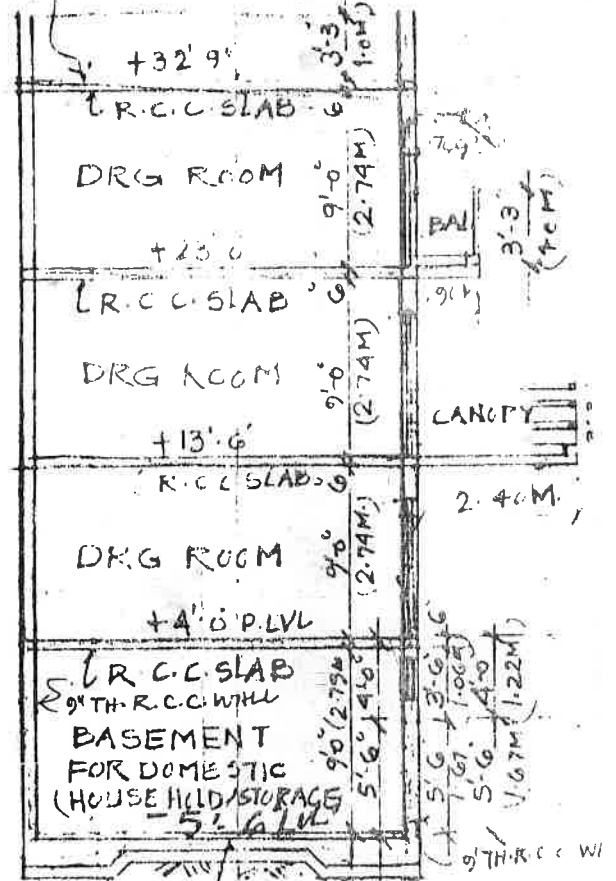 +32' 9"
3'-3"
1.0M)
R.C.C. SLAB 6"
DRG ROOM
9'-0"
(2.74M)
BAL
3'-3"
R.C.C. SLAB 6"
DRG ROOM
9'-0"
(2.74M)
CANOPY
+13'-6"
R.C.C SLAB 6"
2.40M.
DRG ROOM
9'-0"
(2.74M)
+4'-0" P.LVL
R.C.C. SLAB
9" TH. R.C.C. WALL
BASEMENT
FOR DOMESTIC
(HOUSE HOLD/STORAGE
-5'-6 LVL
9'0"
5'-6" 4'-0"
5'-6 3'-6" 6"
5'-6" 4'-0
(1.22M)
9" TH.R.C.C W